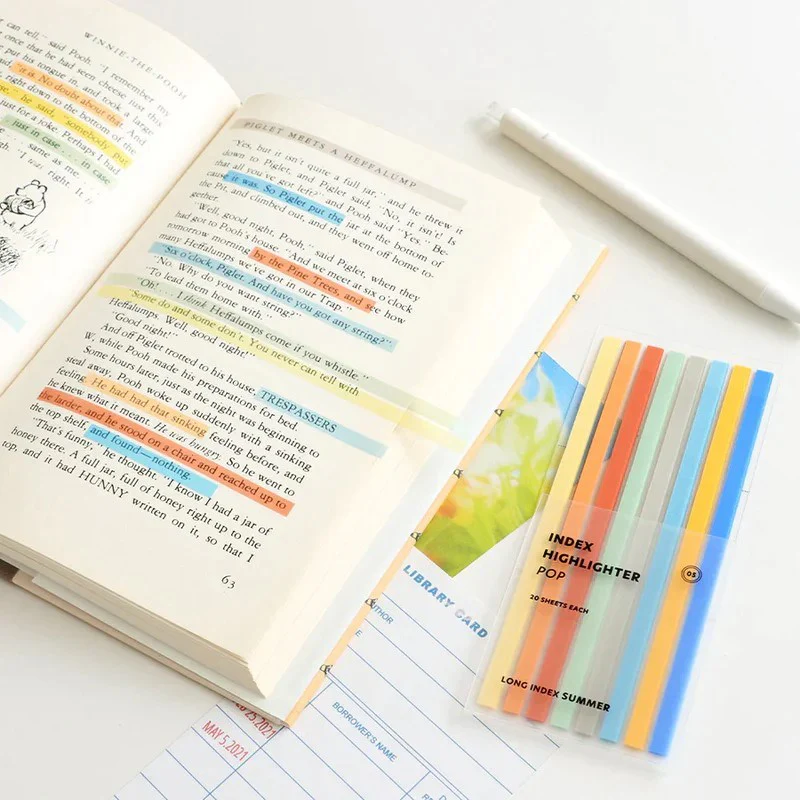 WINNIE-THE-POOH
can tell," said Pooh. "I remember my
once that he had seen cheese just this
put his tongue in, and took a large
"it is. No doubt about that.
right down to the bottom of the
he said, "somebody put
just for a joke. Perhaps I had
just in case . . . in case
same as me
"I was right. It is
PIGLET MEETS A HEFFALUMP
"Yes, but it isn't quite a full jar," and he threw it
down to Piglet, and Piglet said, "No, it isn't. Is
that all you've got left?" and Pooh said "Yes." Be-
cause it was. So Piglet put the jar at the bottom of
the Pit, and climbed out, and they went off home to-
gether.
"Well, good night, Pooh," said Piglet, when they
had got to Pooh's house. "And we meet at six o'clock
tomorrow morning by the Pine Trees, and see how
many Heffalumps we've got in our Trap."
"Six o'clock, Piglet. And have you got any string?"
"No. Why do you want string?"
"To lead them home with."
"Oh! . . . I think Heffalumps come if you whistle."
"Some do and some don't. You never can tell with
Heffalumps. Well, good night!"
"Good night!"
And off Piglet trotted to his house, TRESPASSERS
W, while Pooh made his preparations for bed.
Some hours later, just as the night was beginning to
steal away, Pooh woke up suddenly with a sinking
feeling. He had had that sinking feeling before, and
he knew what it meant. He was hungry. So he went to
the larder, and he stood on a chair and reached up to
the top shelf, and found—nothing.
"That's funny," he thought. "I know I had a jar of
honey there. A full jar, full of honey right up to the
top, and it had HUNNY written on it, so that I
63
INDEX
HIGHLIGHTER
POP
05
20 SHEETS EACH
LONG INDEX SUMMER
LIBRARY CARD
BORROWER'S NAME
25.2021
MAY 5.2021